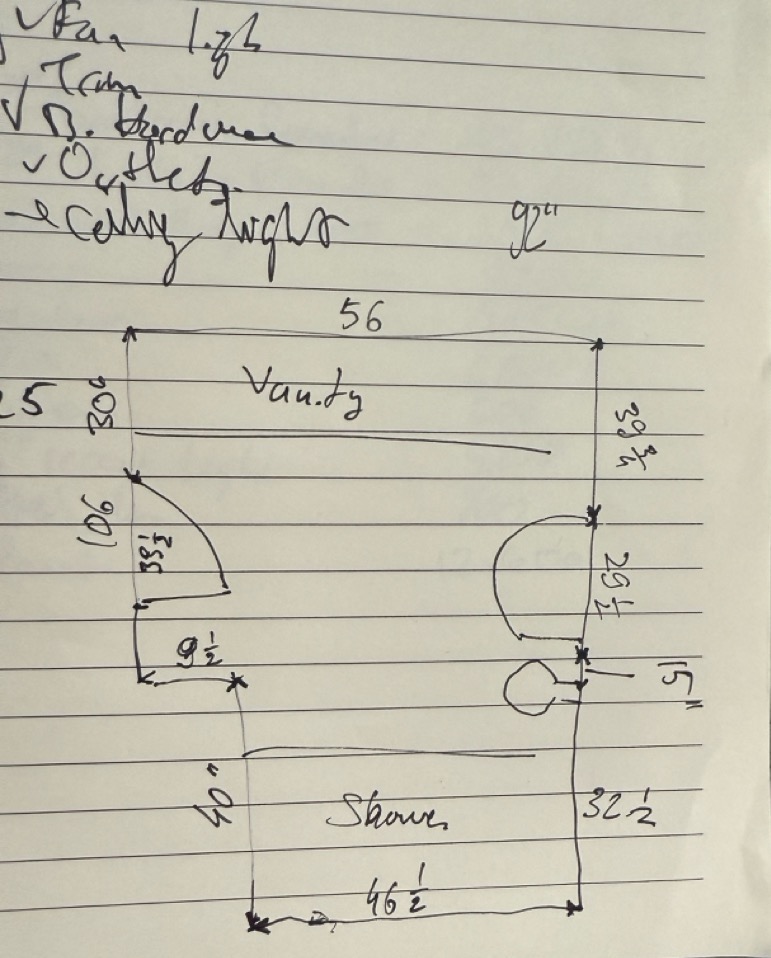 √ Fan Light
Trim
√ B. Hardware
√ Outlets
Ceiling Light
92"
56
25
30"
Vanity
39 3/4
106
33 1/2
29 1/2
9 1/2
15"
40"
Shower
32 1/2
46 1/2